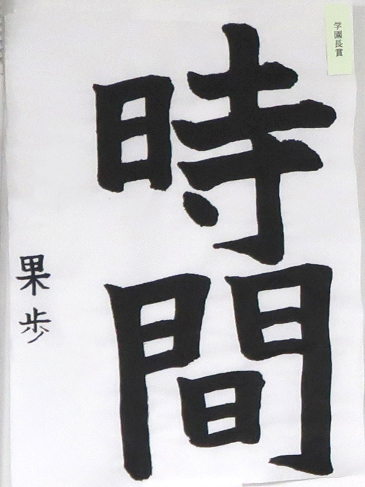 学園長賞
時間
果歩